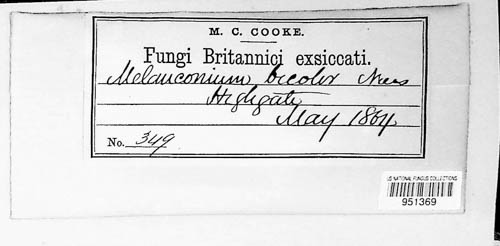 M. C. COOKE.
Fungi Britannici exsiccati.
Melanconium bicolor Nees
Highgate
May 1864
No. 349
US NATIONAL FUNGUS COLLECTIONS
951369